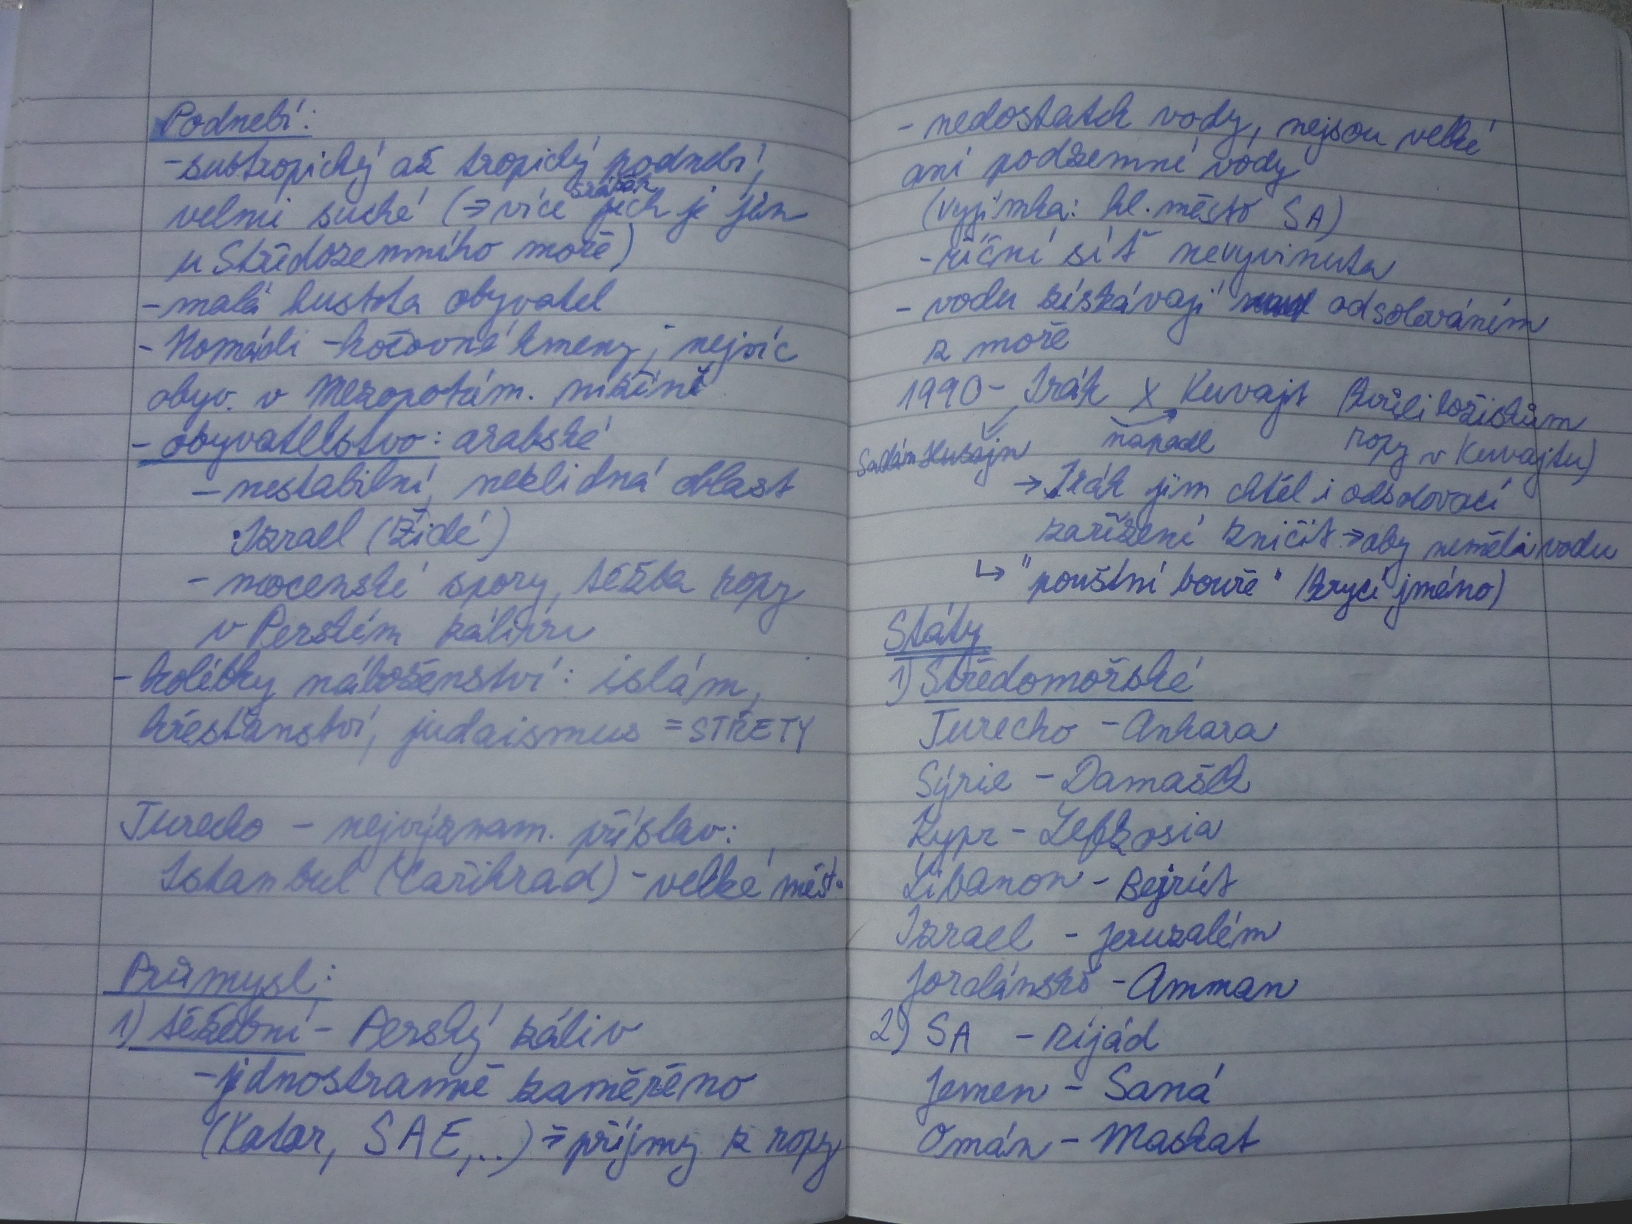 Podnebí:
- subtropický až tropický podnebí,
velmi suché (→ více srážek jich je jen
u Středozemního moře)
- malá hustota obyvatel
- Nomádi - kočovné kmeny; nejvíc
obyv. v Mezopotám. nížině
- obyvatelstvo: arabské
- nestabilní, neklidná oblast
• Izrael (Židé)
- mocenské spory, těžba ropy
v Perském zálivu
- kolébky náboženství: islám,
křesťanství, judaismus = STŘETY
Turecko - nejvýznam. přístav:
Istanbul (Cařihrad) - velké měst.
Průmysl:
1) těžební - Perský záliv
- jednostranně zaměřeno
(Katar, SAE,..) → příjmy z ropy
- nedostatek vody, nejsou velké
ani podzemné vody
(vyjímka: hl. město SA)
- říční síť nevyvinuta
- vodu získávají odsolováním
z moře
1990 - Irák X Kuvajt (kvůli ložiskům
Sadám Husajn napadl ropy v Kuvajtu)
→ Irák jim chtěl i odsolovací
zařízení zničit → aby neměli vodu
↳ "pouštní bouře" (krycí jméno)
Státy
1) Středomořské
Turecko - Ankara
Sýrie - Damašek
Kypr - Lefkosia
Libanon - Bejrút
Izrael - Jeruzalém
Jordánsko - Amman
2) SA - Rijád
Jemen - Saná
Omán - Maskat